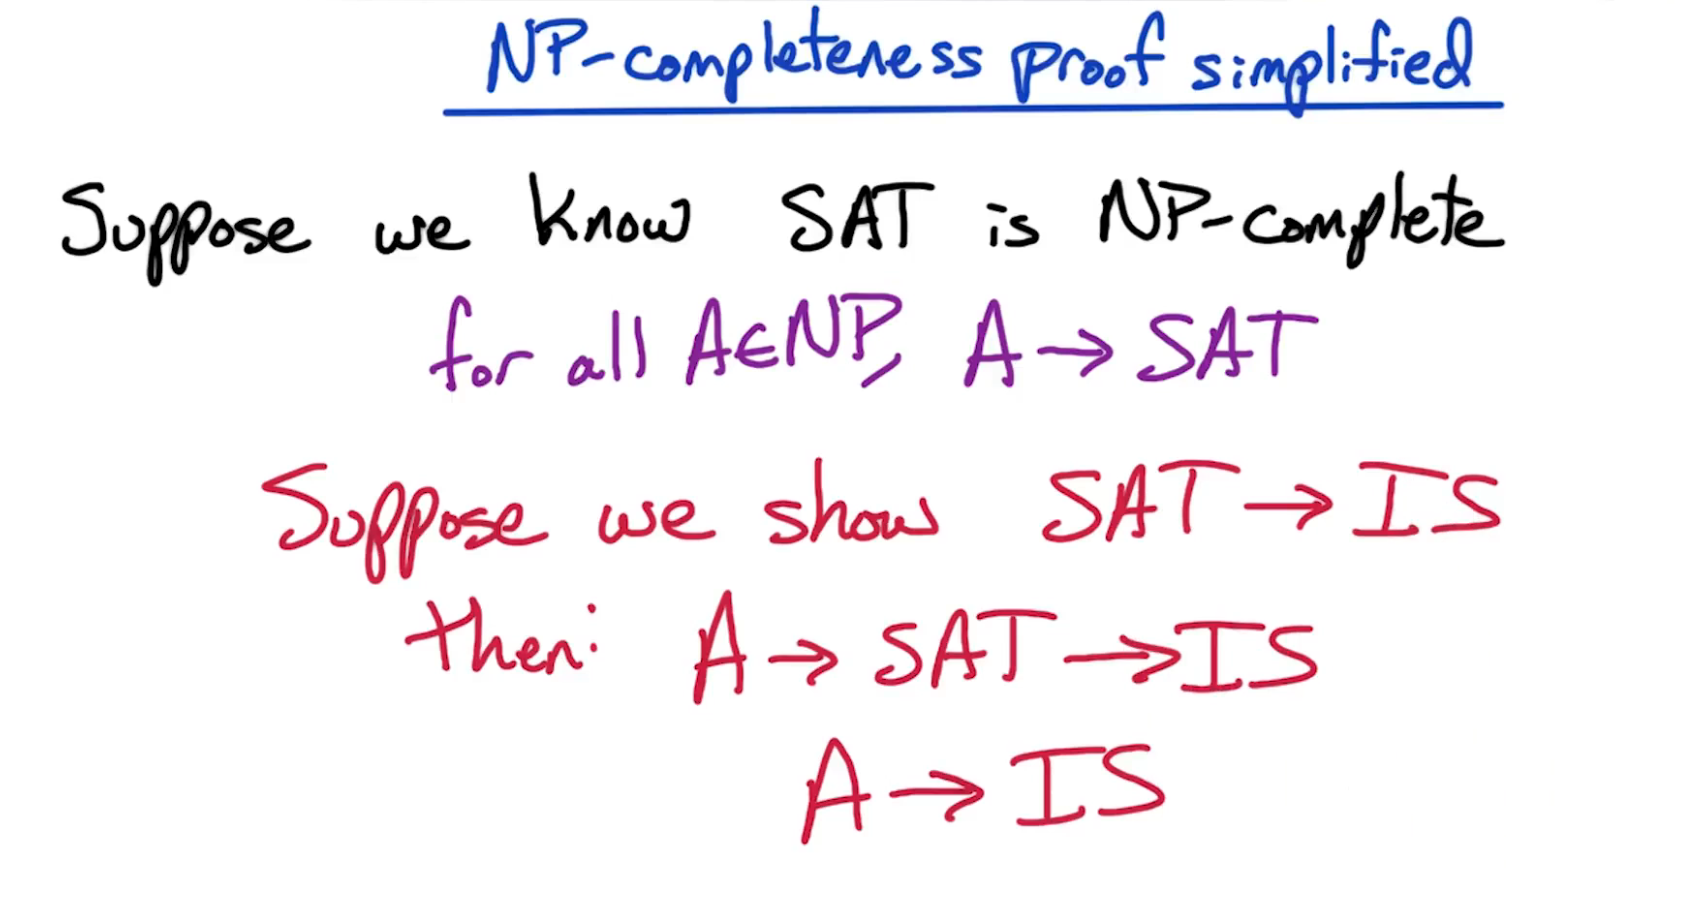 NP-completeness proof simplified
Suppose we know SAT is NP-complete
for all A∈NP, A → SAT
Suppose we show SAT → IS
then: A → SAT → IS
A → IS